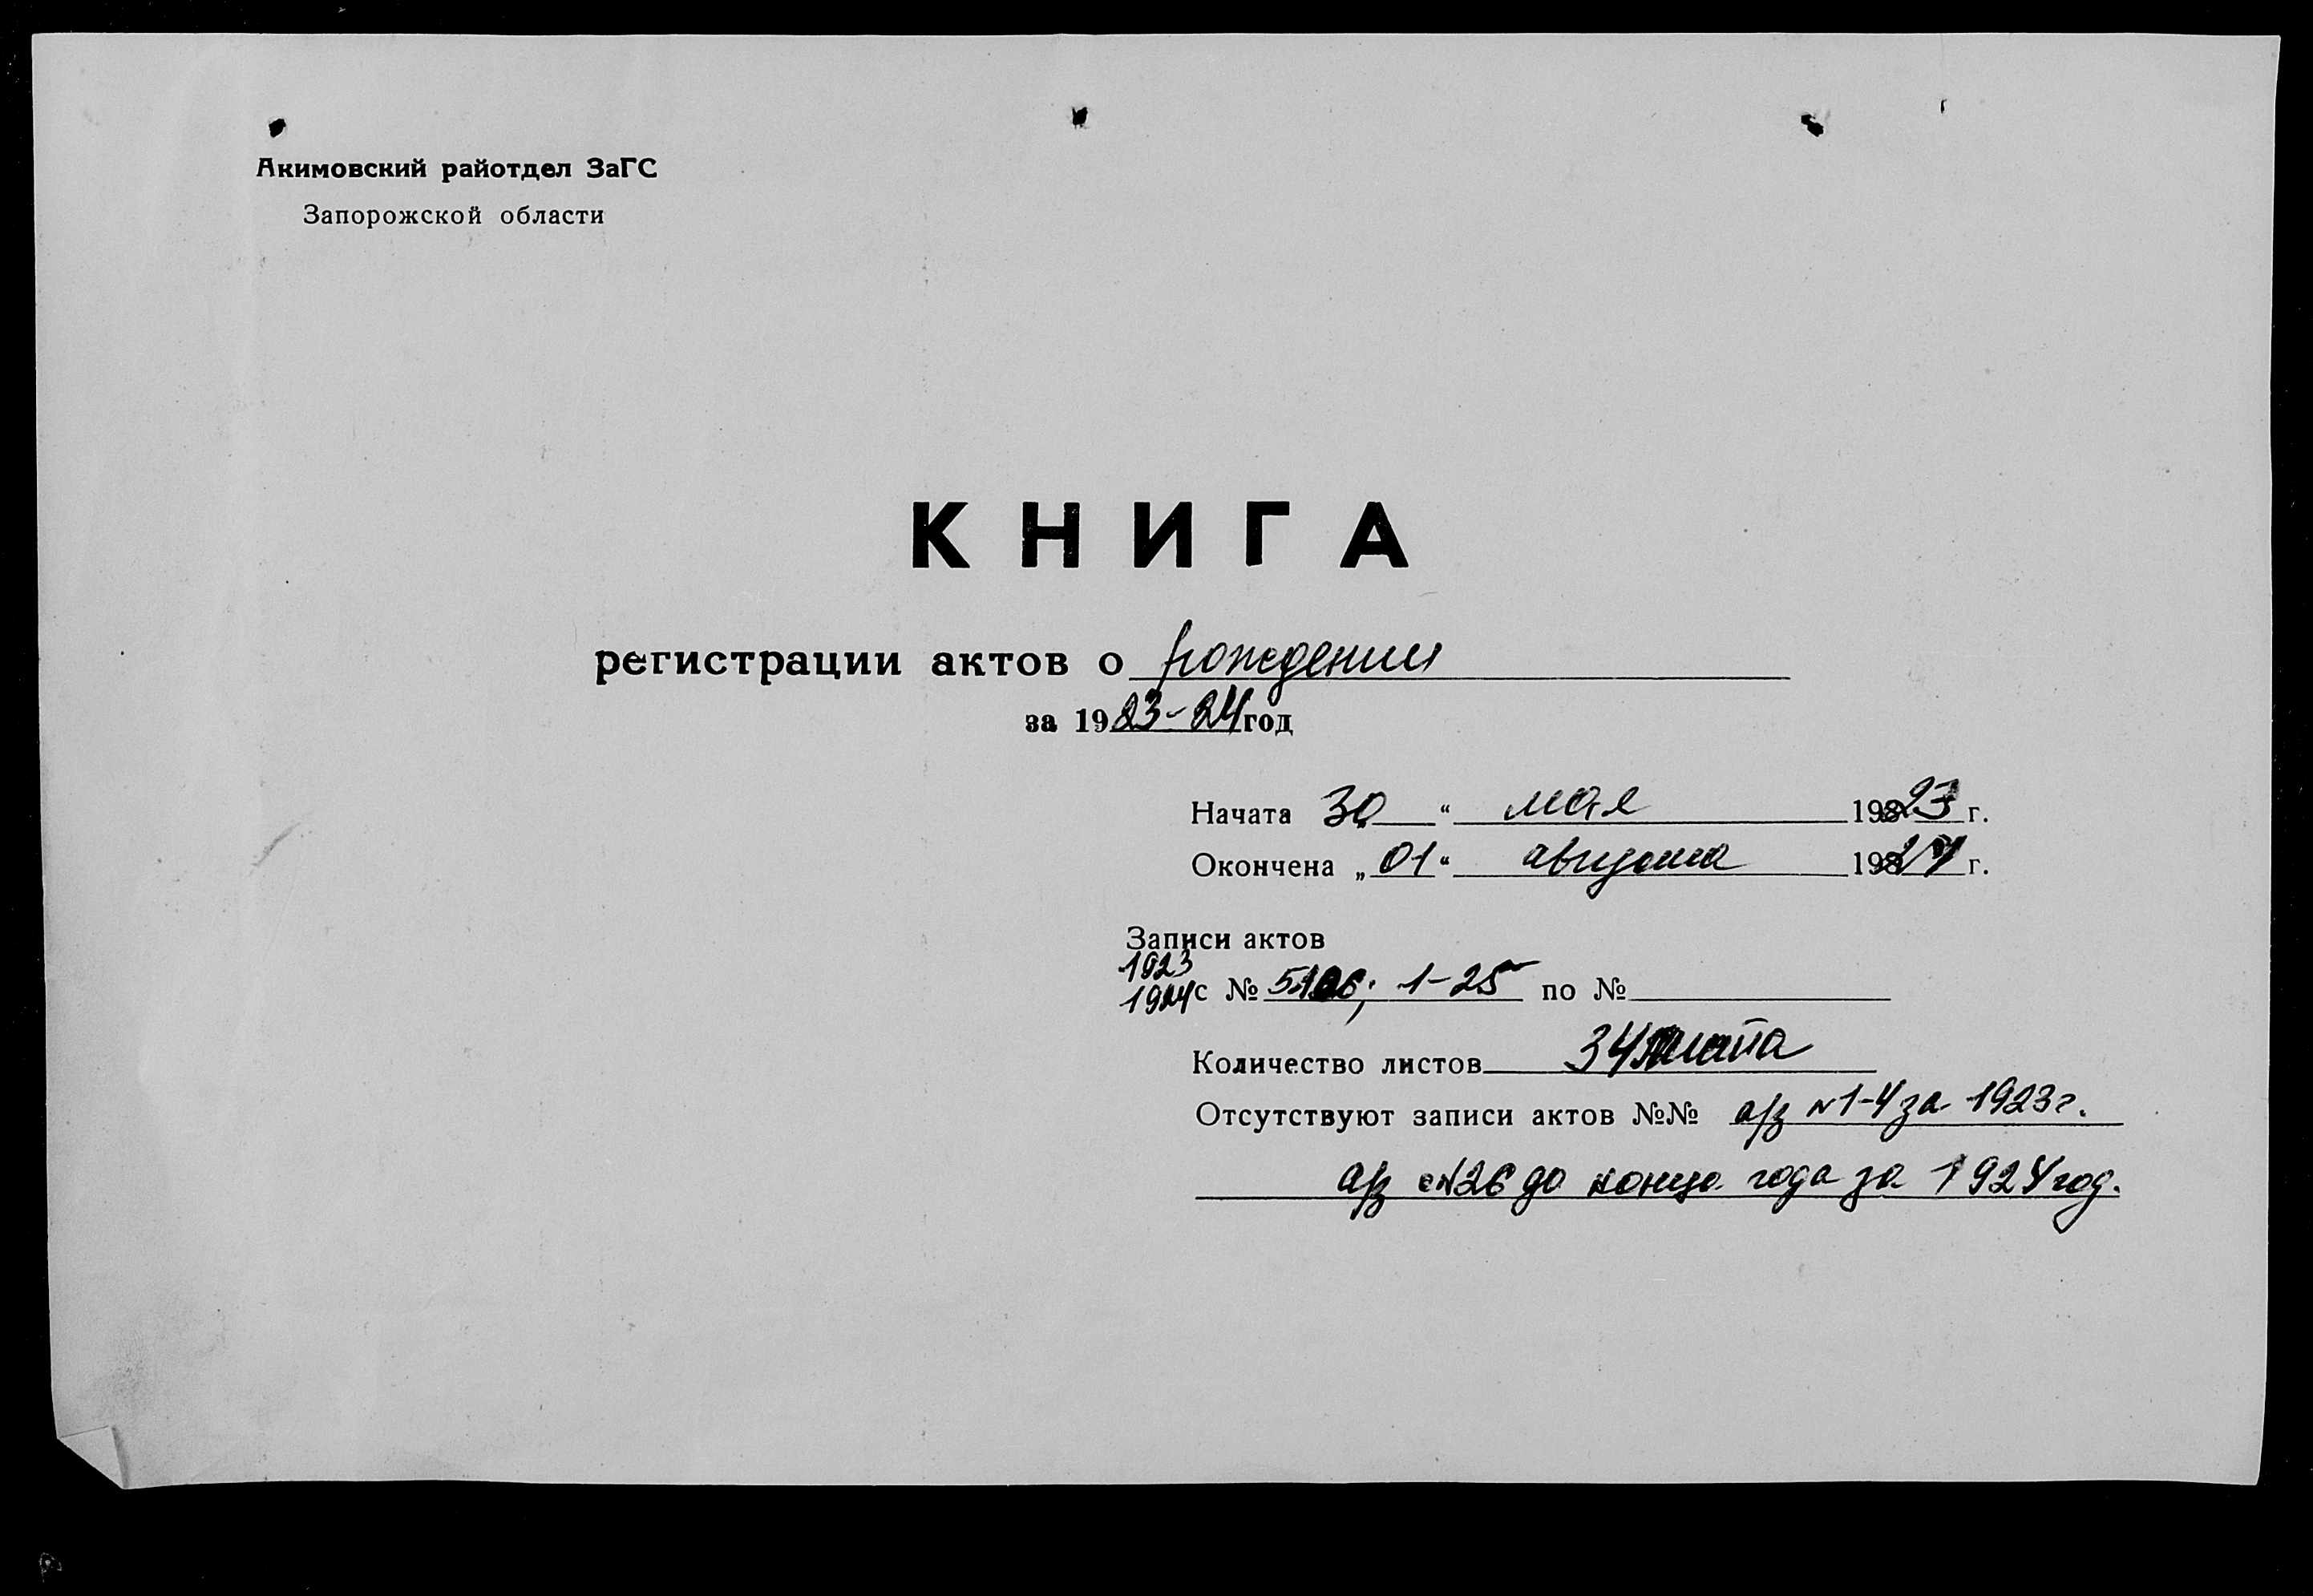 Акимовский райотдел ЗаГС
Запорожской области
КНИГА
регистрации актов о рождении
за 1923-24 год
Начата 30 " мая 1923 г.
Окончена „ 01 " августа 1924 г.
Записи актов
1923
1924 с № 1-25 по №
Количество листов 34 листа
Отсутствуют записи актов №№ а/з №1-4 за 1923г.
а/з с №26 до конца года за 1924 год.